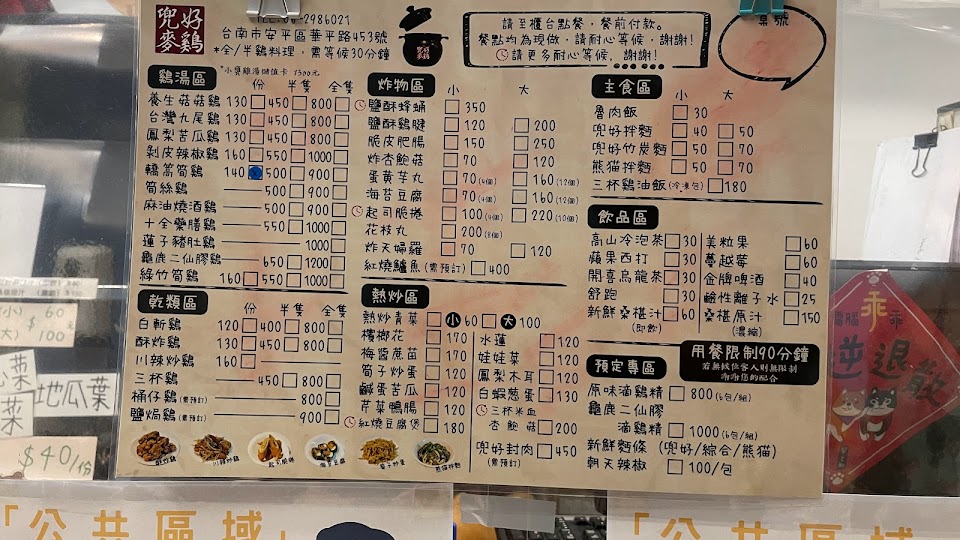 兜好
麥鷄
TEL:06-2986021
台南市安平區華平路453號
*全/半鷄料理,需等候30分鐘
請至櫃台點餐,餐前付款。
餐點均為現做,請耐心等候,謝謝!
請更多耐心等候,謝謝!
桌號
鷄湯區
*小農鷄湯儲值卡 1300元
份 半隻 全隻
養生菇菇鷄 130 450 800
台灣九尾鷄 130 450 800
鳳梨苦瓜鷄 130 450 800
剝皮辣椒鷄 160 550 1000
轎篙筍鷄 140 500 900
筍絲鷄 500 900
麻油燒酒鷄 500 900
十全藥膳鷄 550 1000
蓮子豬肚鷄 1000
龜鹿二仙膠鷄 650 1200
綠竹筍鷄 160 550 1000
乾類區
份 半隻 全隻
白斬鷄 120 400 800
酥炸鷄 130 450 800
川辣炒鷄 160
三杯鷄 450 800
桶仔鷄(需預訂) 800
鹽焗鷄(需預訂) 900
炸物區
小 大
鹽酥蜂蛹 350
鹽酥鷄腱 120 200
脆皮肥腸 150 250
炸杏鮑菇 70 120
蛋黃芋丸 70(4個) 160(12個)
海苔豆腐 70(4個) 160(12個)
起司脆捲 100(4個) 220(10個)
花枝丸 200(8個)
炸天婦羅 70 120
紅燒鱸魚(需預訂) 400
熱炒區
熱炒青菜 小 60 大 100
檳榔花 170
梅醬蕉苗 170
筍子炒蛋 120
鹹蛋苦瓜 120
芹菜鴨腸 120
紅燒豆腐煲 180
水蓮 120
娃娃菜 120
鳳梨木耳 120
白蝦蔥蛋 130
三杯米血
杏鮑菇 200
兜好封肉 450
(需預訂)
主食區
小 大
魯肉飯 30
兜好拌麵 40 50
兜好竹炭麵 50 70
熊猫拌麵 50 70
三杯鷄油飯(冷凍包) 180
飲品區
高山冷泡茶 30
蘋果西打 30
開喜烏龍茶 30
舒跑 30
新鮮桑椹汁 60
(即飲)
美粒果 60
蔓越莓 60
金牌啤酒 40
鹼性離子水 25
桑椹原汁 150
(濃縮)
用餐限制90分鐘
若無候位客人則無限制
謝謝您的配合
預定專區
原味滴鷄精 800(6包/組)
龜鹿二仙膠
滴鷄精 1000(6包/組)
新鮮麵條 (兜好/綜合/熊猫)
朝天辣椒 100/包
川辣炒鷄
熊猫拌麵
(小) $ 60
(大) $ 100
地瓜葉
菜
$40/份
乖
逆
退散
「公共區域」
「公共區域